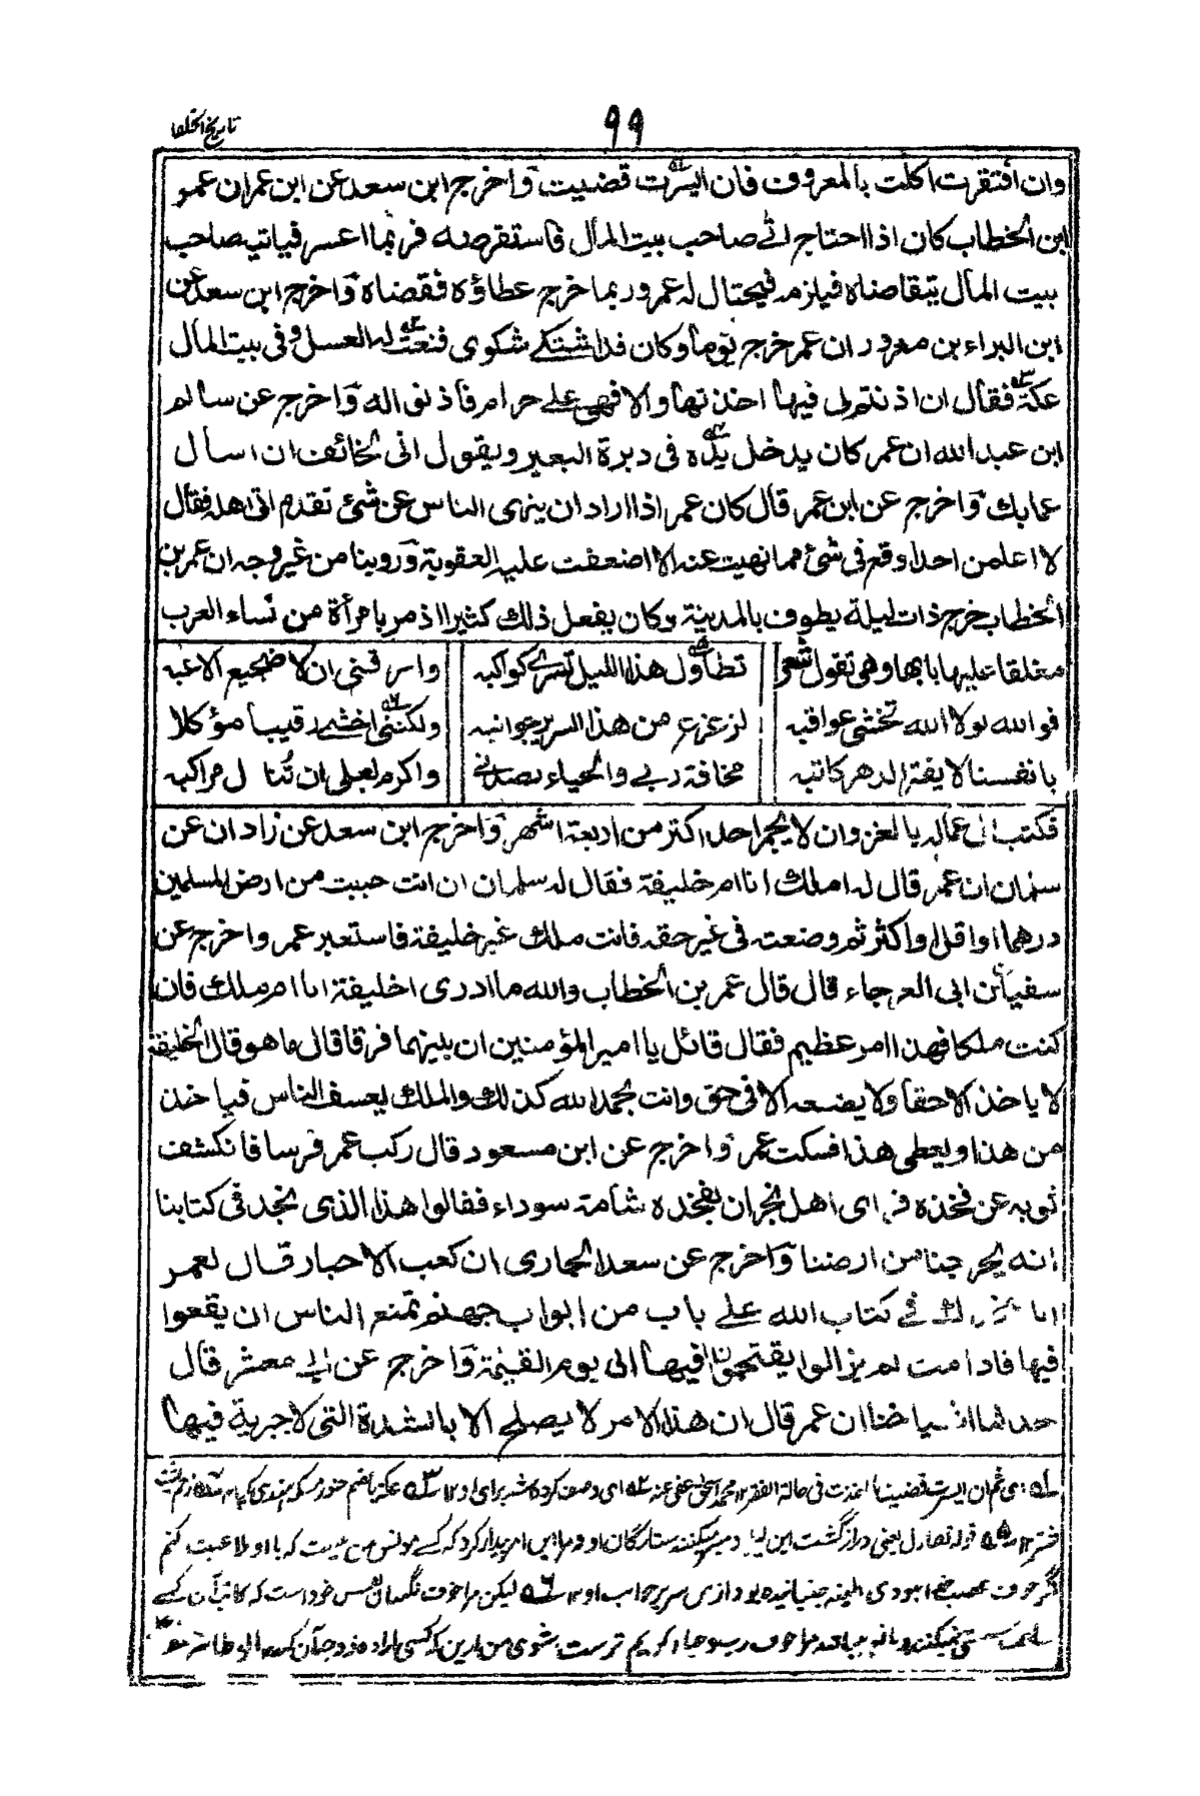 تاریخ الخلفا
٩٩
وان افتقرت اكلت بالمعروف فان ايسرت قضيت واخرج ابن سعد عن ابن عمر ان عمر
ابن الخطاب كان اذا احتاج اتى صاحب بيت المال فاستقرضه فربما اعسر فياتيه صاحب
بيت المال يتقاضاه فيلزمه فيحتال له عمر وربما خرج عطاؤه فقضاه واخرج ابن سعد عن
ابن البراء بن معرور ان عمر خرج يوما وكان قد اشتكى شكوى فنعت له العسل وفي بيت المال
عكة فقال ان اذنتم لى فيها اخذتها والا فهى على حرام فاذنوا له واخرج عن سالم
ابن عبد الله ان عمر كان يدخل يده فى دبرة البعير ويقول انى لخائف ان اسال
عما بك واخرج عن ابن عمر قال كان عمر اذا اراد ان ينهى الناس عن شئ تقدم الى اهله فقال
لا اعلمن احدا وقع فى شئ مما نهيت عنه الا اضعفت عليه العقوبة وروينا من غير وجه ان عمر بن
الخطاب خرج ذات ليلة يطوف بالمدينة وكان يفعل ذلك كثيرا اذ مر بامرأة من نساء العرب
مغلقا عليها بابها وهى تقول شعر تطاول هذا الليل تسرى كواكبه وارقنى ان لا ضجيع الاعبه
فوالله لولا الله تخشى عواقبه لزعزع من هذا السرير جوانبه ولكننى اخشى رقيبا مؤكلا
بانفسنا لا يفتر الدهر كاتبه مخافة ربى والحياء يصدنى واكرم بعلى ان تنال مراكبه
فكتب الى عماله بالغزو ان لا يجمر احد اكثر من اربعة اشهر واخرج ابن سعد عن زاذان عن
سلمان ان عمر قال له املك انا ام خليفة فقال له سلمان ان انت جبيت من ارض المسلمين
درهما او اقل او اكثر ثم وضعته فى غير حقه فانت ملك غير خليفة فاستعبر عمر واخرج عن
سفيان بن ابى العرجاء قال قال عمر بن الخطاب والله ما ادرى اخليفة انا ام ملك فان
كنت ملكا فهذا امر عظيم فقال قائل يا امير المؤمنين ان بينهما فرقا قال ما هو قال الخليفة
لا ياخذ الا حقا ولا يضعه الا فى حق وانت بحمد الله كذلك والملك يعسف الناس فياخذ
من هذا ويعطى هذا فسكت عمر واخرج عن ابن مسعود قال ركب عمر فرسا فانكشف
ثوبه عن فخذه فراى اهل نجران بفخذه شامة سوداء فقالوا هذا الذى نجد فى كتابنا
انه يخرجنا من ارضنا واخرج عن سعد الجارى ان كعب الاحبار قال لعمر
انا لنجدك فى كتاب الله على باب من ابواب جهنم تمنع الناس ان يقعوا
فيها فاذا مت لم يزالوا يقتحمون فيها الى يوم القيمة واخرج عن ابى معشر قال
حدثنا اشياخنا ان عمر قال ان هذا الامر لا يصلح الا بالشدة التى لا جبرية فيها
اى ثم ان ايسرت قضينا ما اخذت فى حالة الفقر ١٢ محمد اسحق عفى عنه اى وصف كرده شد براى او ١٢ عكة بالضم
قوله تطاول يعنى دراز گشت اين ليل و سير ميكنند ستارگان او و مرا اين امر بيدار كرد كه كسے مونس من نيست كه با او ملاعبت كنم
اگر خوف خدا نبودى البته جنبانيده بودازى سرير جوانب او ١٢ ليكن مرا خوف نگهبان نفس خود است كه كاتب آن كسے